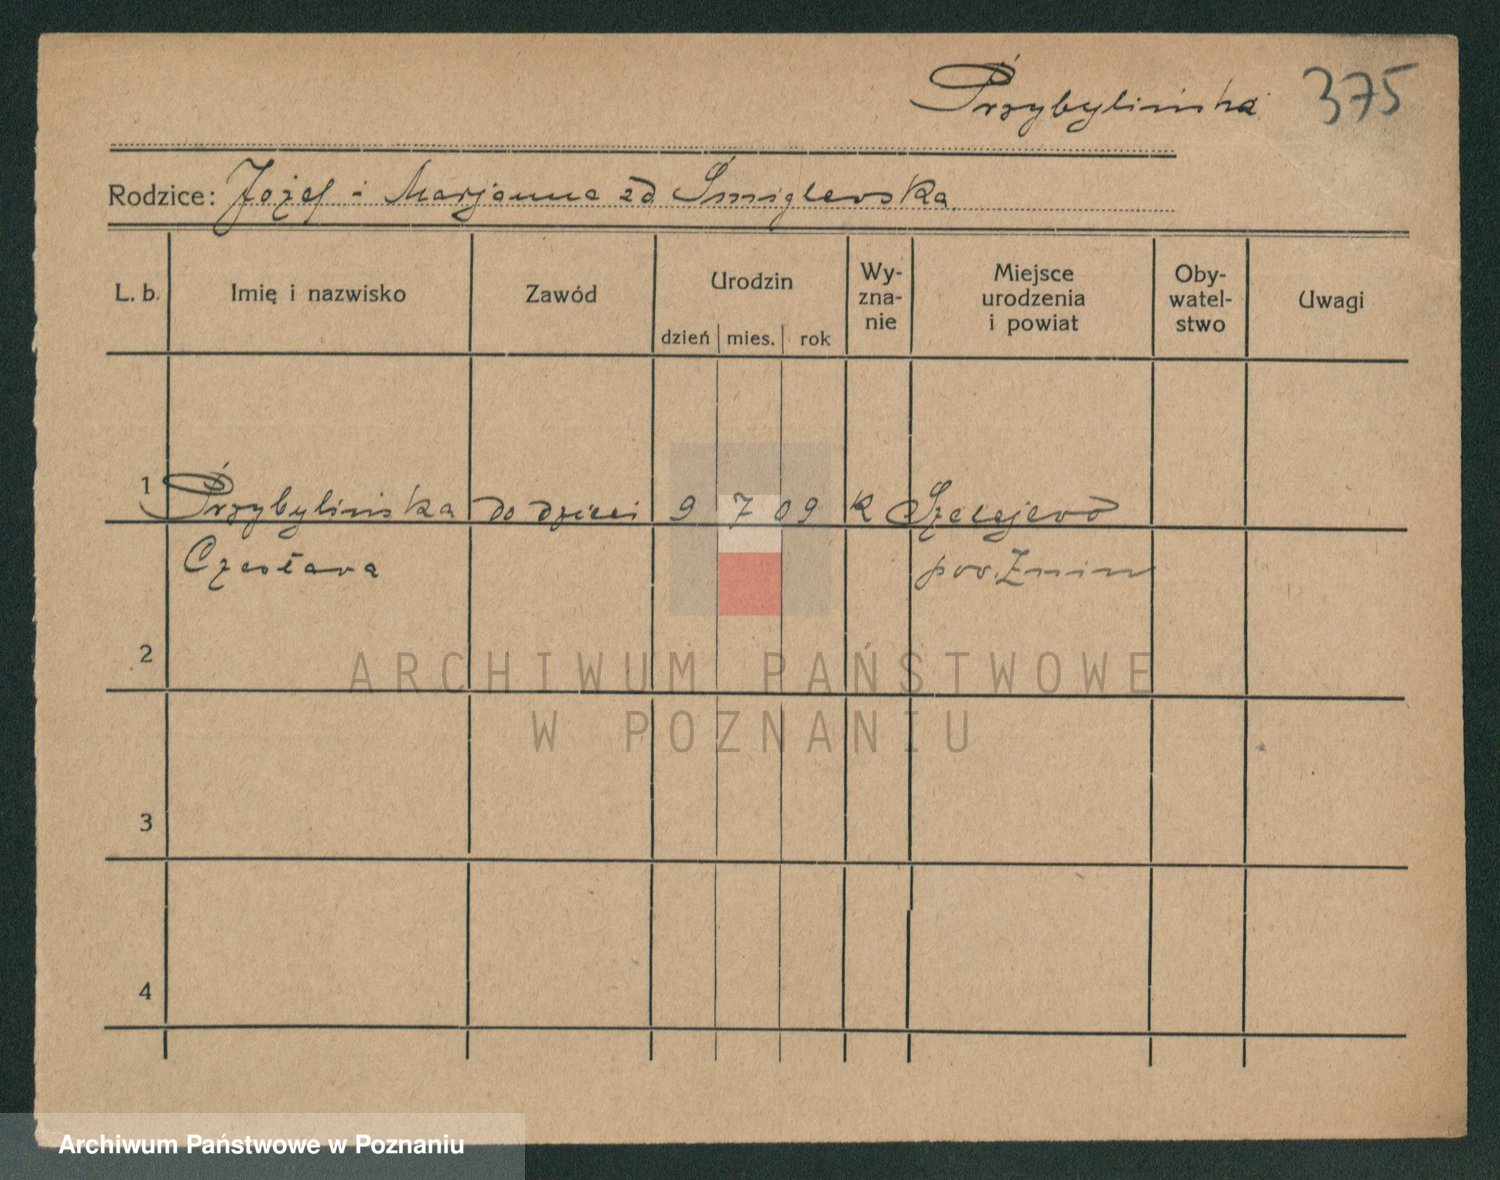 Przybylińska 375
Rodzice: Józef i Marjanna zd Śmiglewska.
L. b. Imię i nazwisko Zawód Urodzin Wy-zna-nie Miejsce urodzenia i powiat Oby-watel-stwo Uwagi
dzień mies. rok
1 Przybylińska do dzieci 9 7 09 k Szelejewo
Czesława pow. Żnin
2
ARCHIWUM PAŃSTWOWE
W POZNANIU
3
4
Archiwum Państwowe w Poznaniu